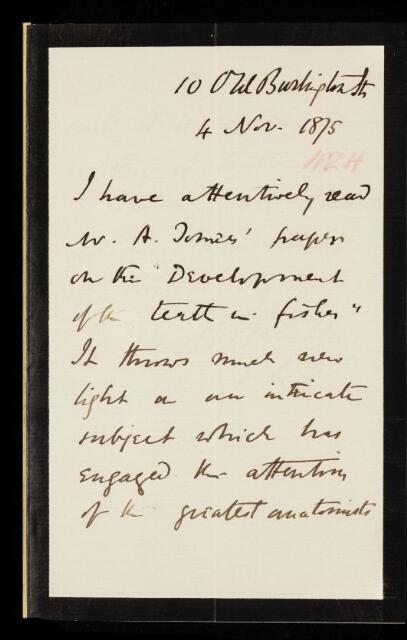 10 Old Burlington St
4 Nov. 1875
424
I have attentively read
Mr. A. Tomes' paper
on the "Development
of the teeth in fishes"
It throws much new
light on an intricate
subject which has
engaged the attention
of the greatest anatomists